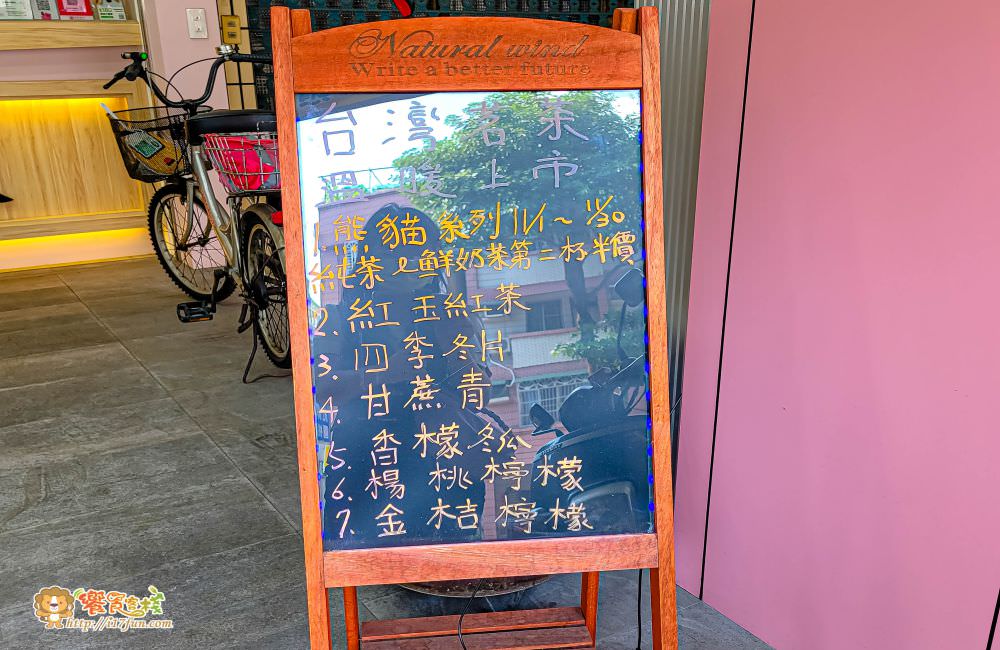 Natural wind
Write a better future
台灣茗茶
溫暖上市
1.熊貓系列11/1~11/30
純茶&鮮奶茶第二杯半價
2.紅玉紅茶
3.四季冬片
4.甘蔗青
5.香檬冬瓜
6.楊桃檸檬
7.金桔檸檬
饗食直樓
http://t17fun.com